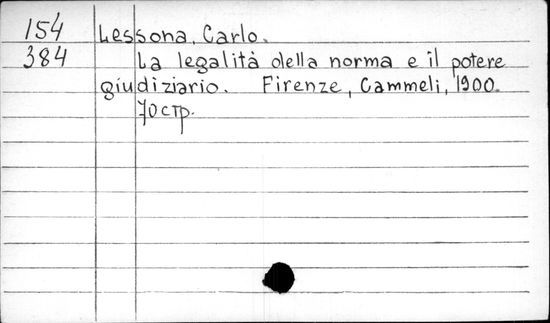 154 Lessona, Carlo.
384 La legalità della norma e il potere
giudiziario. Firenze, Cammeli, 1900.
70 стр.